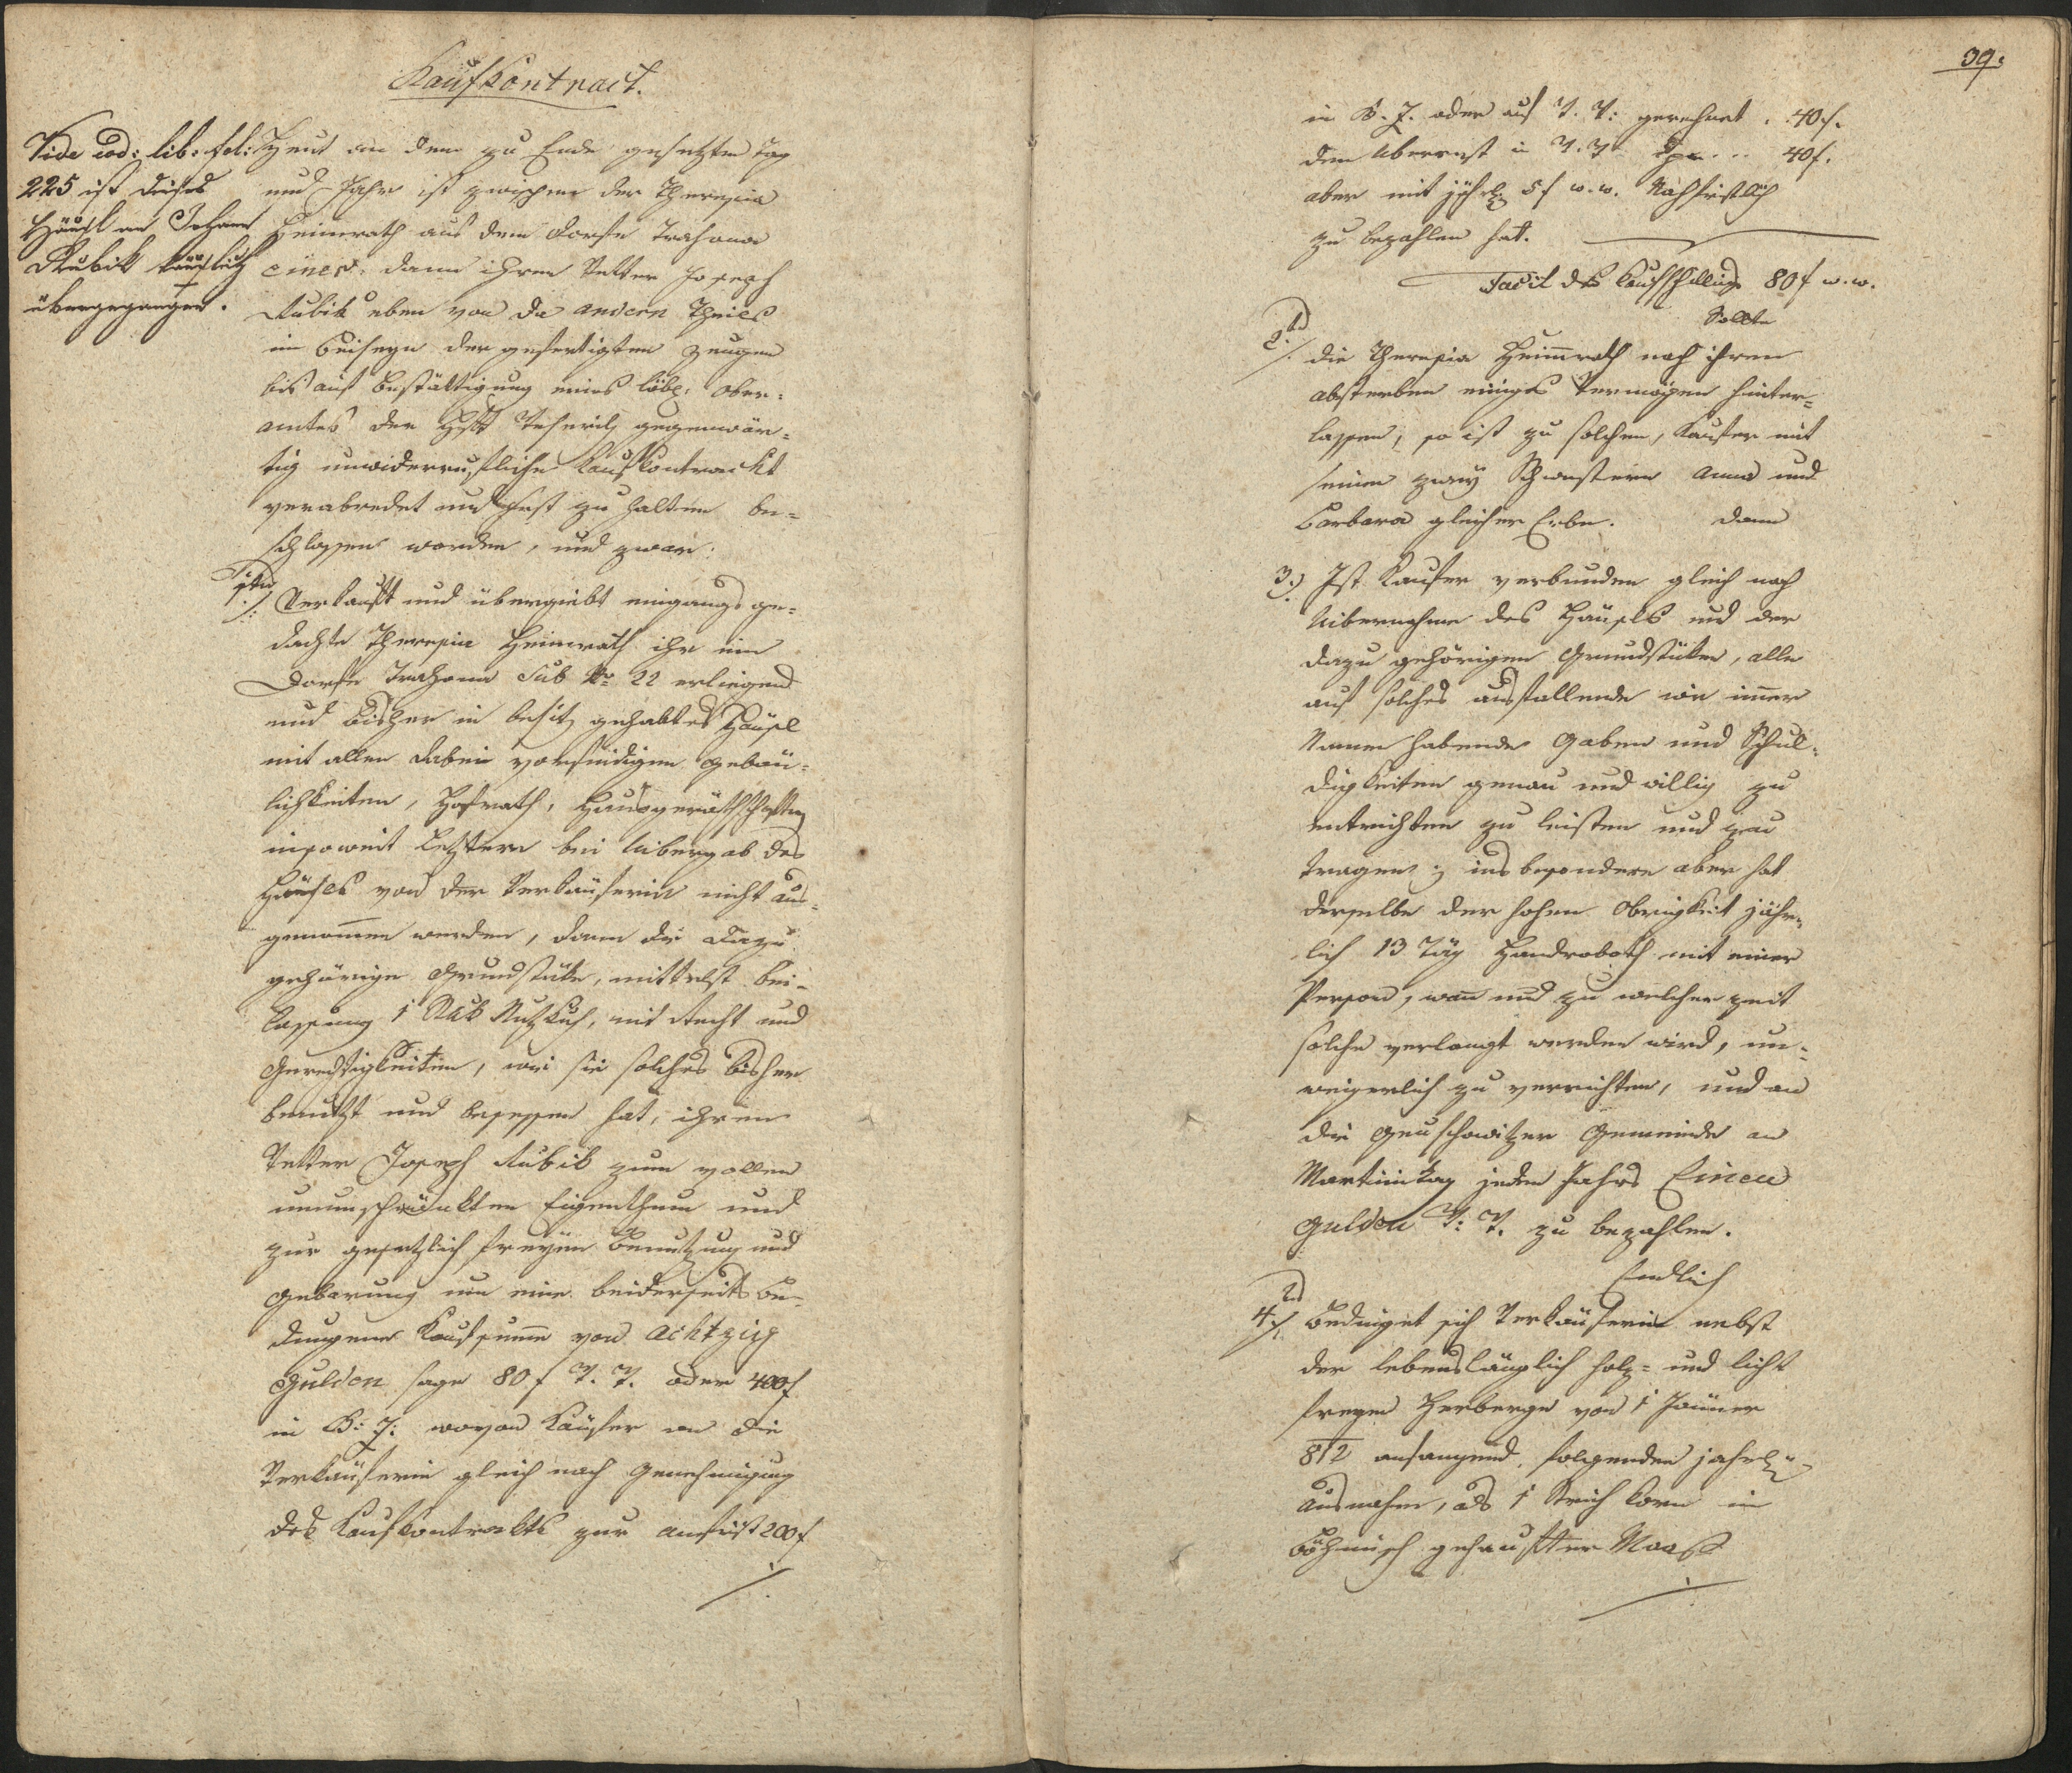 Kaufkontract.
Vide eod: lib: fol:
225 ist dieses
Häusl an Johann
Kubik käuflich
übergegangen.
Heut an dem zu Ende gesetzten Tag
und Jahr ist zwischen der Theresia
Heimrath aus dem Dorfe Trahona
eines: dann ihren Vetter Joseph
Kubik eben von da andern Theils
im Beiseyn der gefertigten Zeugen
bis auf Bestättigung eines löbl: Ober-
amtes der Hftt gegenwär-
tig unwiderrufliche Kaufkontrackt
verabredet und fest zu halten be-
schlossen worden, und zwar:
1tens Verkauft und übergiebt eingangs ge-
dachte Theresia Heimrath ihr im
Dorfe Trahona sub Nr. 22 erliegend
und bisher in besitz gehabtes Häusl
mit allen dabei vorfindigen Gebäu-
lichkeiten, Hofrath, Hausgeräthschaften
insoweit Letztere bei Uibergab des
Häusels von der Verkäuferin nicht aus-
genommen werden, dann die dazu
gehörige Grundstüke, mittelst bei-
lassung 1 Stük Nutzkuh, mit Recht und
Gerechtigkeiten, wie sie solches bisher
benutzt und besessen hat, ihren
Vetter Joseph Kubik zum vollen
unumschränkten Eigenthum und
zur gesetzlich freyen Benutzung und
Gebarung um eine beiderseits be-
dungene Kaufsumme von Achtzig
Gulden sage 80 f V. V. oder 400 f
in B: Z: wovon Käufer an die
Verkäuferin gleich nach Genehmigung
des Kaufkontrakts zur anfrist 200 f
./.
39.
in B. Z. oder auf V. V: gerechnet . 40 f.
den Uiberrest in V. V. ... 40 f.
aber mit jährl. 5 f w. w. Nachfristlich
zu bezahlen hat.
Facit des Kaufschillings 80 f w. w.
Sollte
2. die Theresia Heimrath nach ihren
absterben einiges Vermögen hinter-
lassen, so ist zu solchen, Kaufer mit
seinen zwey Schwestern Anna und
Barbara gleicher Erbe. Dann
3.) Ist Kaufer verbunden gleich nach
Uibernahme des Häusels und der
dazu gehörigen Grundstüke, alle
auf solches ausfallende wie immer
Namen habende Gaben und Schul-
digkeiten genau und willig zu
entrichten zu leisten und zu
tragen; ins besondere aber hat
derselbe der hohen Obrigkeit jähr-
lich 13 Täg Handroboth mit einer
Person, wann und zu welcher zeit
solche verlangt werden wird, un-
weigerlich zu verrichten, und an
die Geuschowitzer Gemeinde an
Martinitag jeden Jahrs Einen
Gulden V: V. zu bezahlen.
Endlich
4. Bedinget sich Verkäuferin nebst
der lebenslänglich holz- und licht
freyen Herberge von 1 Jänner
812 anfangend, folgenden jährl.
ausnahm, als 1 Strich Korn in
Böhmisch gehaufter Maaß
./.